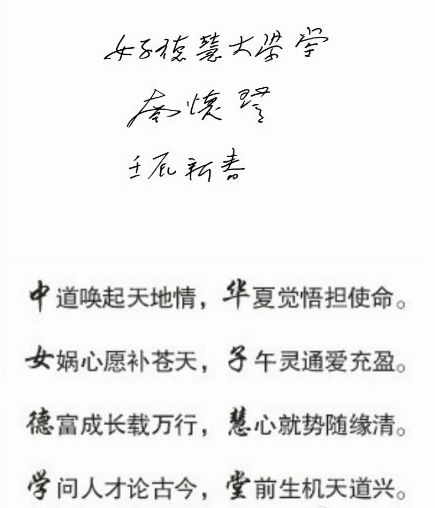 女子德慧大学
南懷瑾
壬辰新春
中道唤起天地情，华夏觉悟担使命。
女娲心愿补苍天，子午灵通爱充盈。
德富成长载万行，慧心就势随缘清。
学问人才论古今，堂前生机天道兴。